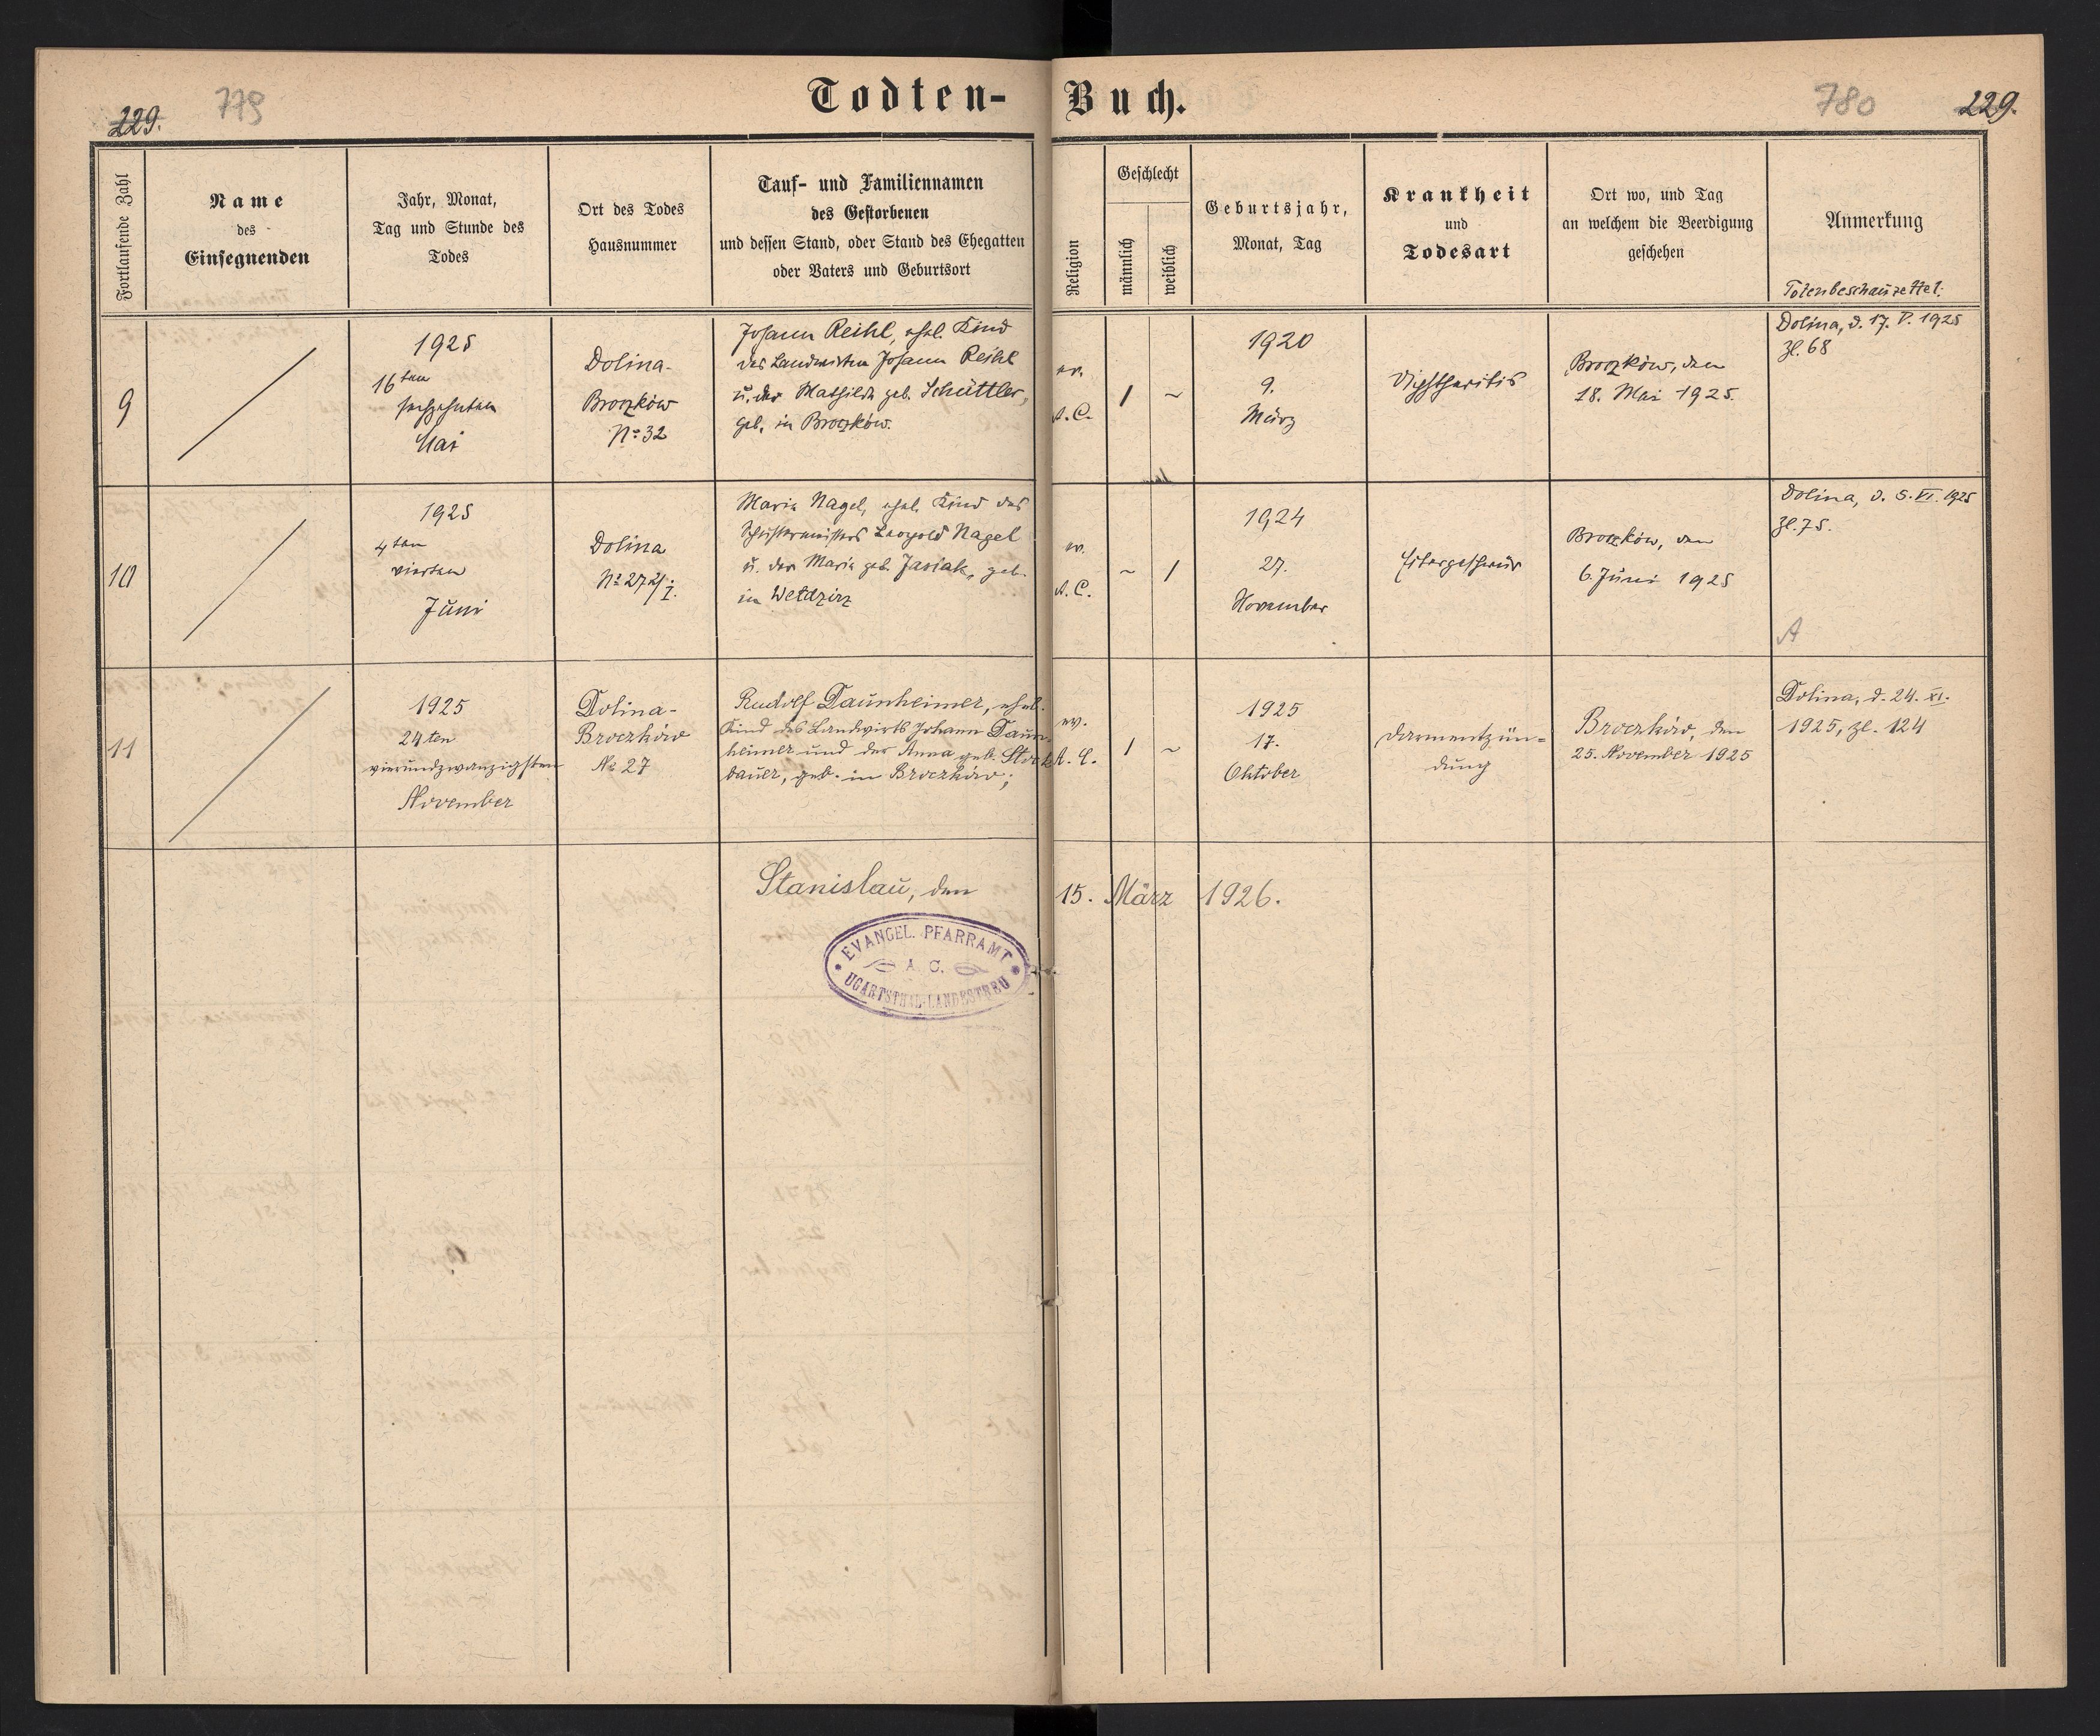 Todten-Buch.
229. 779
780 229.
Fortlaufende Zahl
Name
des
Einsegnenden
Jahr, Monat,
Tag und Stunde des
Todes
Ort des Todes
Hausnummer
Tauf- und Familiennamen
des Gestorbenen
und dessen Stand, oder Stand des Ehegatten
oder Vaters und Geburtsort
Religion
Geschlecht
männlich
weiblich
Geburtsjahr,
Monat, Tag
Krankheit
und
Todesart
Ort wo, und Tag
an welchem die Beerdigung
geschehen
Anmerkung
Totenbeschauzettel:
9
1925
16ten
sechzehnten
Mai
Dolina-
Broczków
No 32
Johann Reihl, ehel. Kind
des Landwirten Johann Reihl
u. der Mathilde geb. Schüttler,
geb. in Broczków.
ev.
A.C.
1 ~
1920
9.
März
Diphtheritis
Broczków, den
18. Mai 1925.
Dolina, d. 17. V. 1925
Zl. 68
10
1925
4ten
vierten
Juni
Dolina
No 272/I.
Maria Nagel, ehel. Kind des
Schustermeisters Leopold Nagel
u. der Maria geb. Jasiak, geb.
in Wełdzirz
ev.
A.C.
~ 1
1924
27.
November
Eitergeschwür
Broczków, den
6. Juni 1925
Dolina, d. 5. VI. 1925
Zl. 75.
A
11
1925
24ten
vierundzwanzigsten
November
Dolina-
Broczków
No 27
Rudolf Daunheimer, ehel.
Kind des Landwirts Johann Daun-
heimer und der Anna geb. Stock
bauer, geb. in Broczków;
ev.
A.C.
1 ~
1925
17.
Oktober
Darmentzün=
dung
Broczków, den
25. November 1925
Dolina, d. 24. XI.
1925, Zl. 124
Stanislau, den 15. März 1926.
EVANGEL. PFARRAMT
A. C.
UGARTSTHAL-LANDESTREU